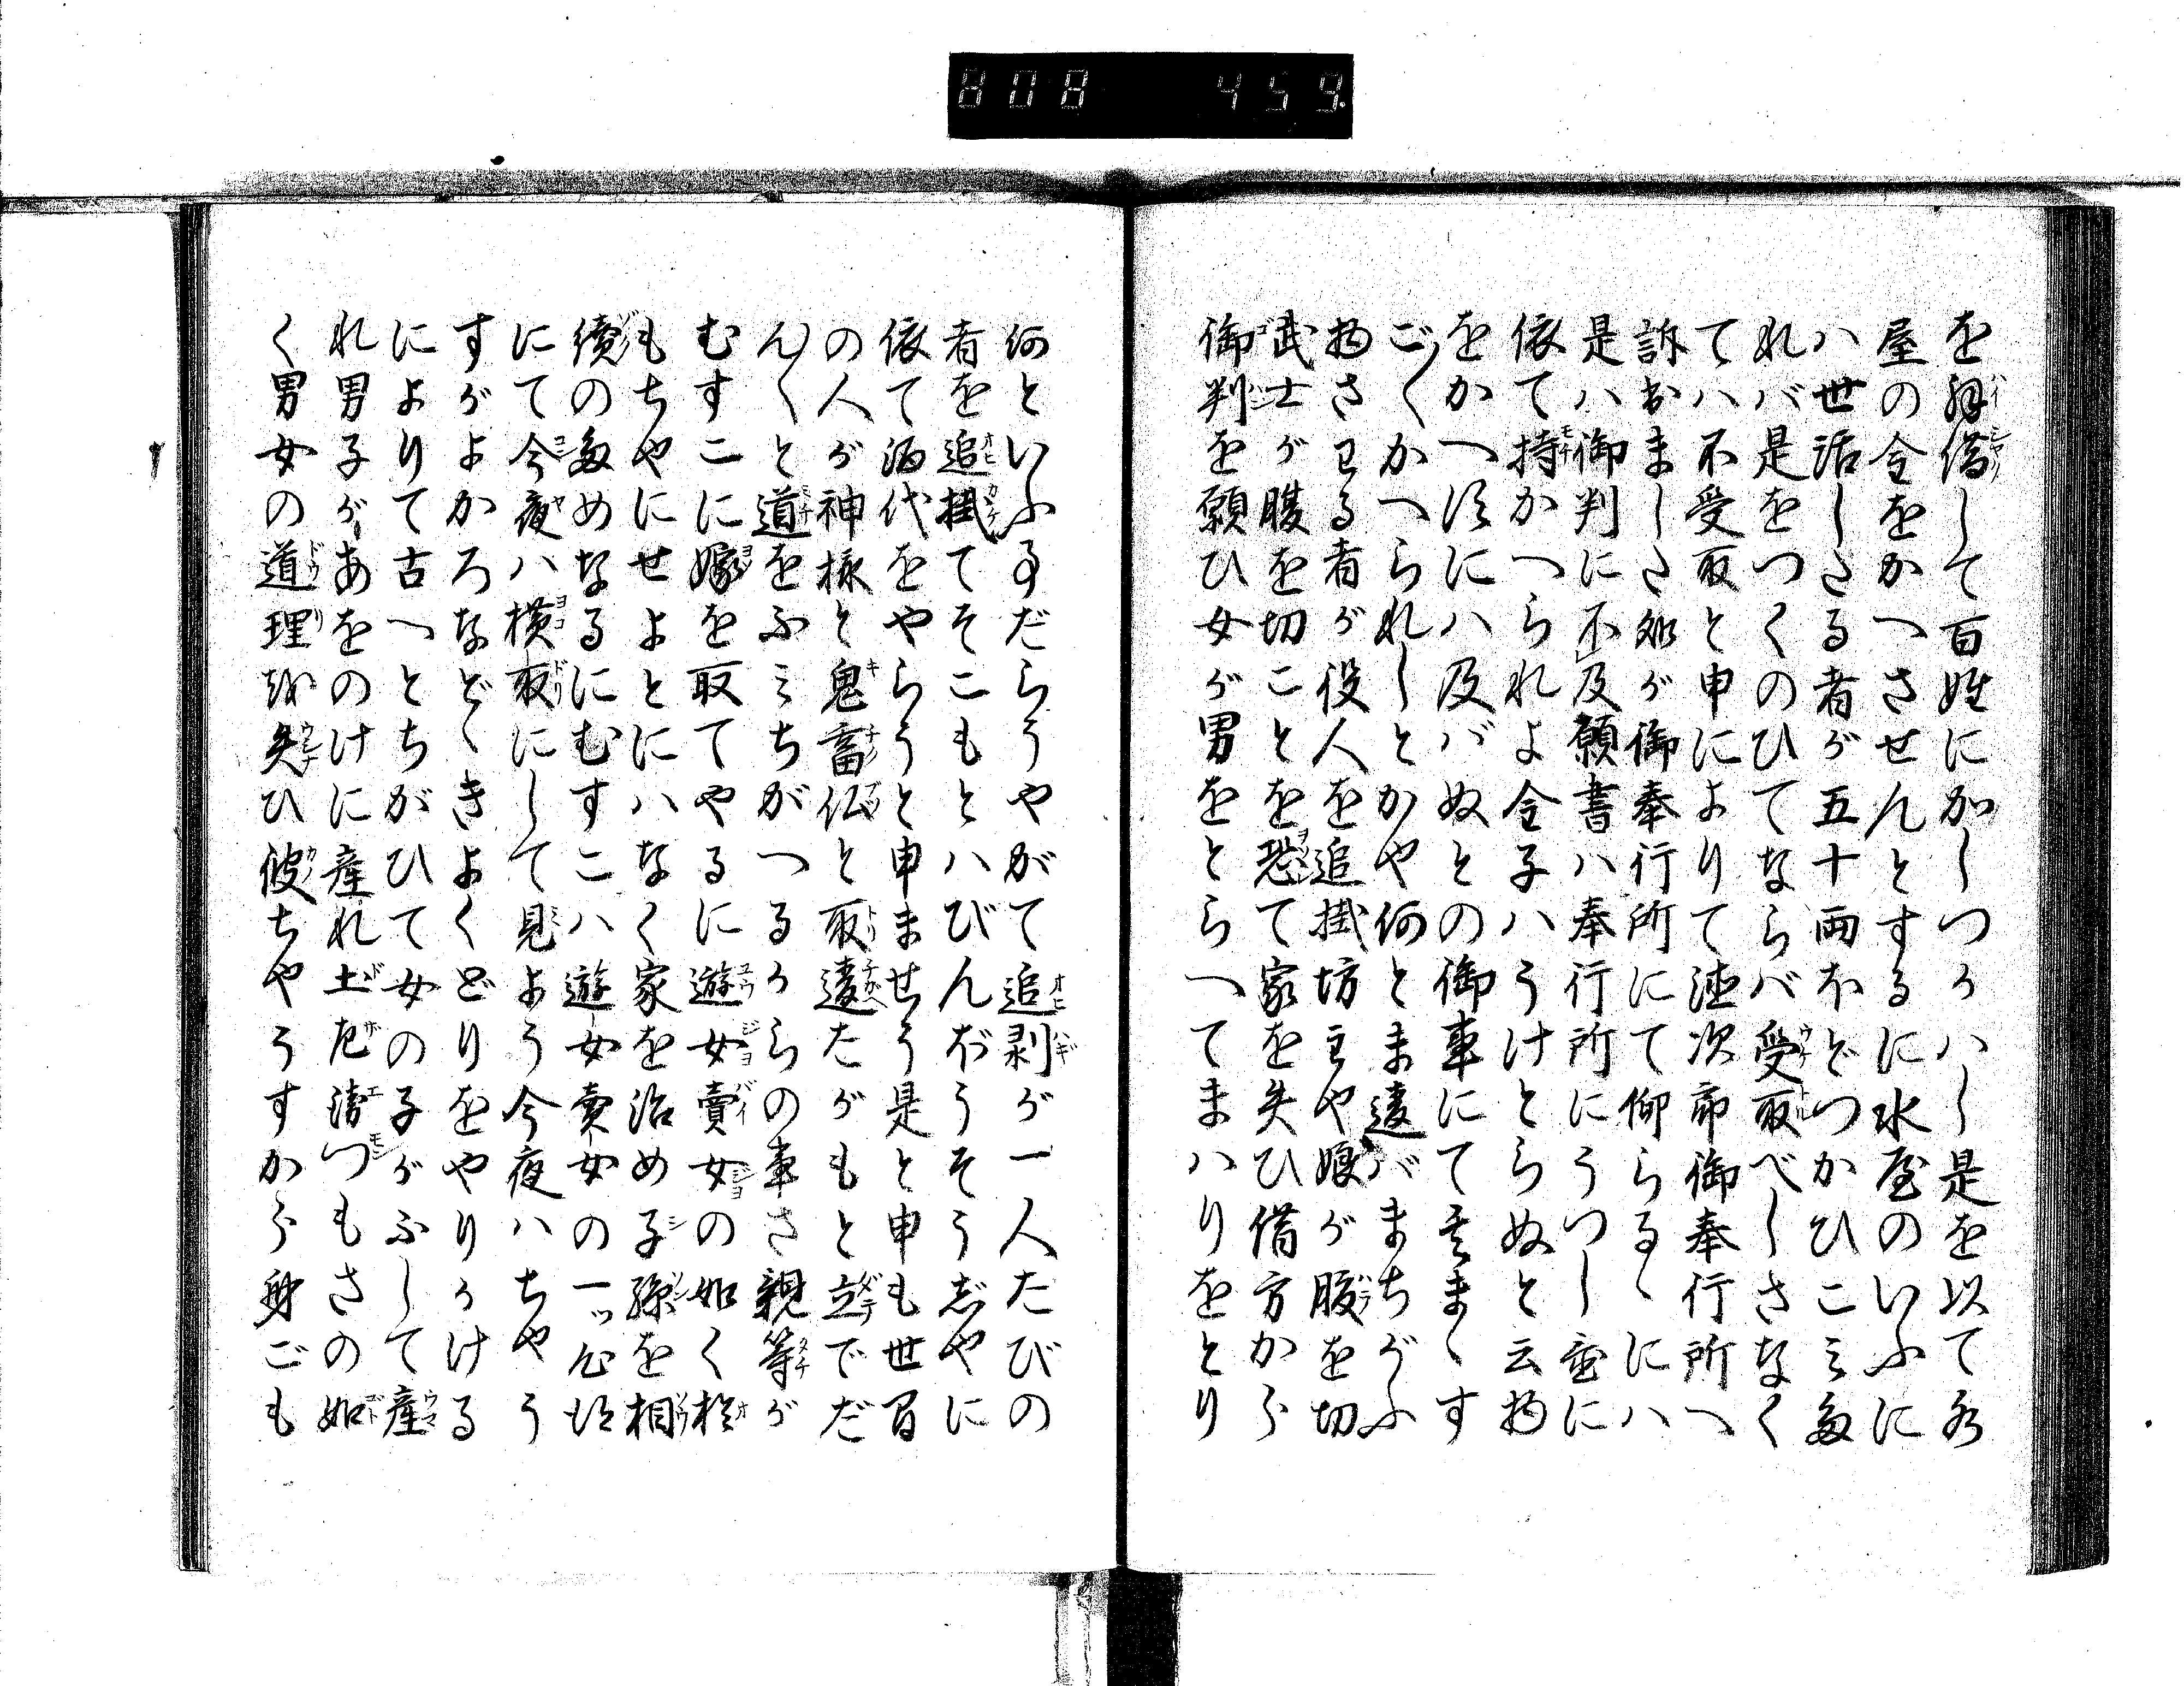 808 459
を拝借して百姓にかしつけハし是を以て水
屋の金をかへさせんとするに水屋のいふに
ハ世話しさる者が五十両ほどつかひこミ多
れバ是をつくのひてならバ受取べしさなく
てハ不受取と申によりて徳次郎御奉行所へ
訴おましさ処が御奉行所にて仰らるゝにハ
是ハ御判に不及願書ハ奉行所にうつし置に
依て持かへられよ金子ハうけとらぬと云物
をかへ須にハ及バぬとの御事にてまゝす
ごくかへられしとかや何とま違バまちがふ
物さ王る者が役人を追掛坊主や娘が腹を切
武士が腹を切ことを恐て家を失ひ借方から
御判を願ひ女が男をとらへてまハりをとり
何といふ事だらうやがて追剥が一人たびの
者を追掛てそこもとハびんぼうそう志やに
依て酒代をやらうと申ませう是と申も世間
の人が神様と鬼畜仏と取違たがもと立でだ
んくと道をふミちがつるからの事さ親等が
むすこに嫁を取てやるに遊女賣女の如く於
もちやにせよとにハなく家を治め子孫を相
續の多めなるにむすこハ遊女賣女の一ッ心得
にて今夜ハ横取にして見よう今夜ハちやう
すがよかろなどゝきよくどりをやりかける
によりて古へとちがひて女の子がふして産
れ男子があをのけに産れ土瓦請つもさの如
く男女の道理越失ひ彼ちやうすから身ごも